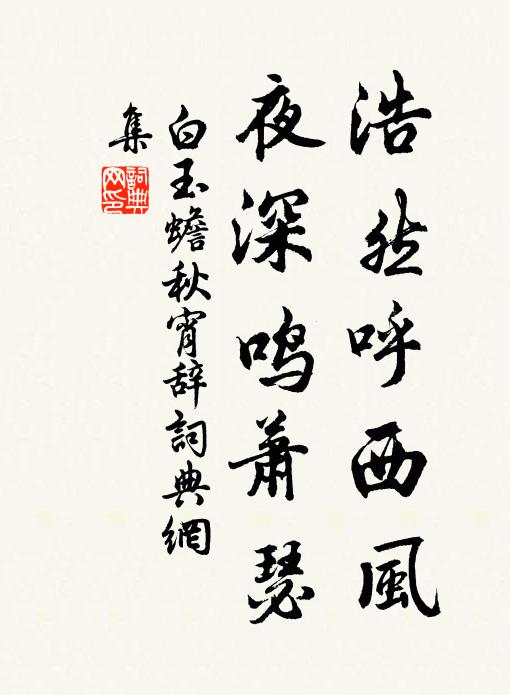 浩然呼西風
夜深鳴蕭瑟
白玉蟾秋宵辭詞典網
集
詞典網印